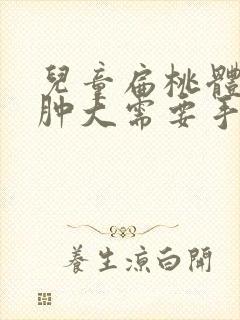 兒童扁桃體
肿大需要手
養生凉白開